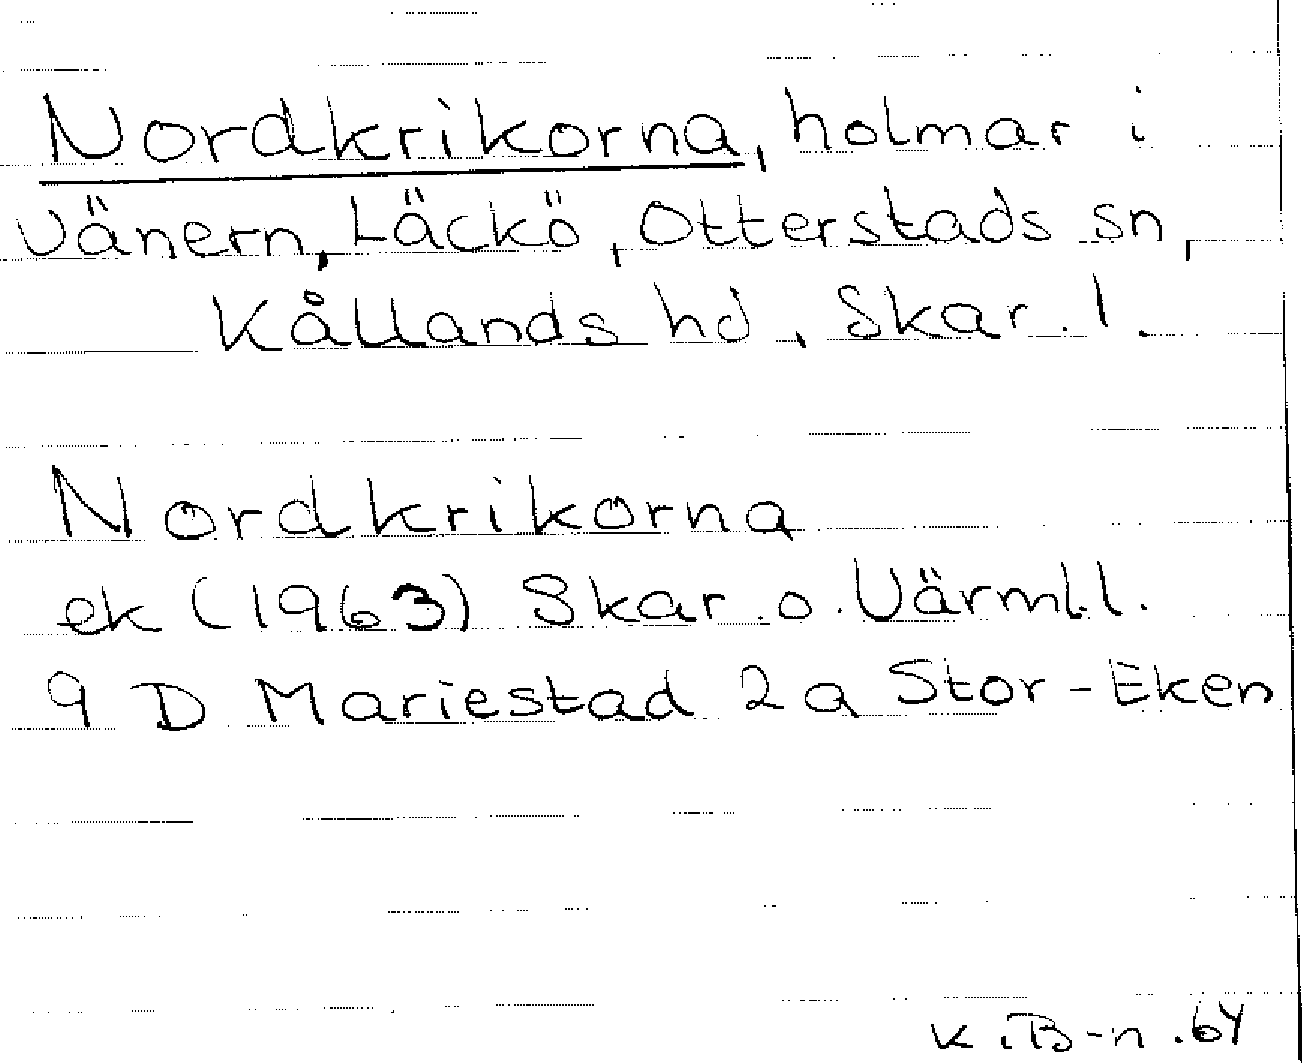 Nordkrikorna, holmar i
Vänern, Läckö, Otterstads sn,
Kållands hd, Skar. l.
Nordkrikorna
ek (1963) Skar. o. Värml.l.
9 D Mariestad 2a Stor-Eken
K.B-n.64